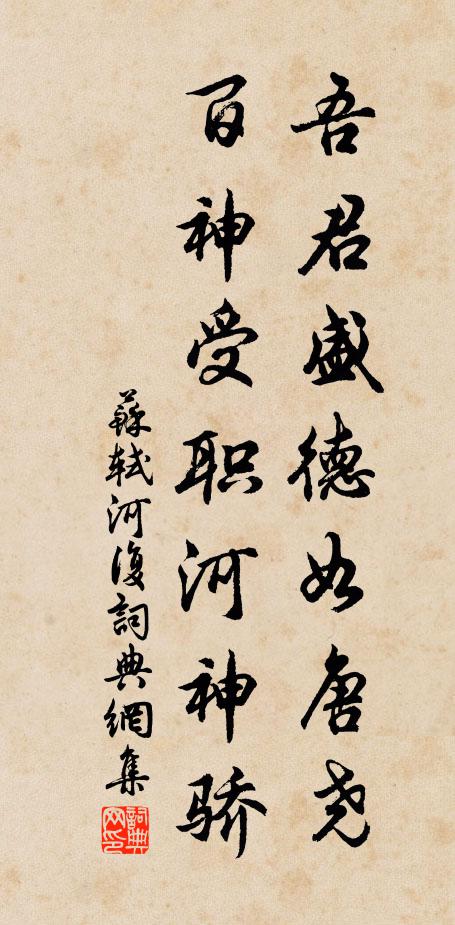 吾君盛德如唐尧
百神受职河神骄
蘇軾河復詞典網集
詞典网印